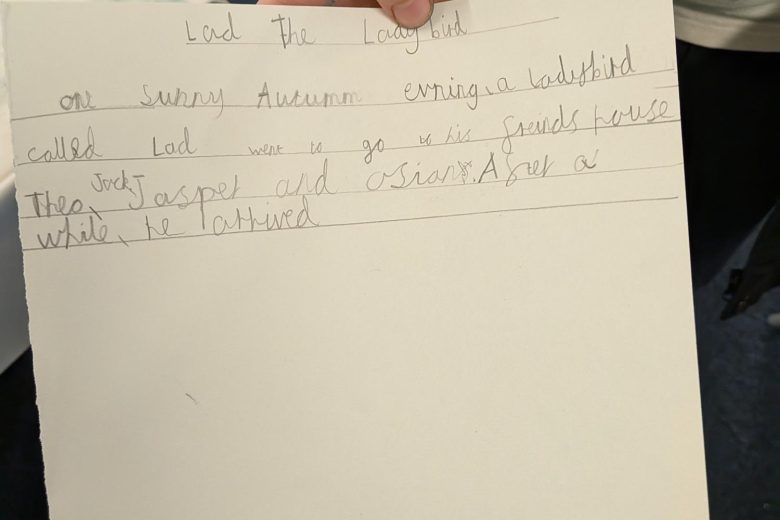 Lad the Ladybird
one sunny Autumn evning, a ladybird
called Lad went to go to his freinds house
Theo, Jack, Jasper and osian. After a
while, he arrived